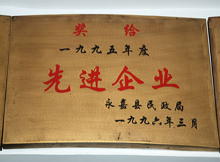 奖给
一九九五年度
先进企业
永嘉县民政局
一九九六年三月